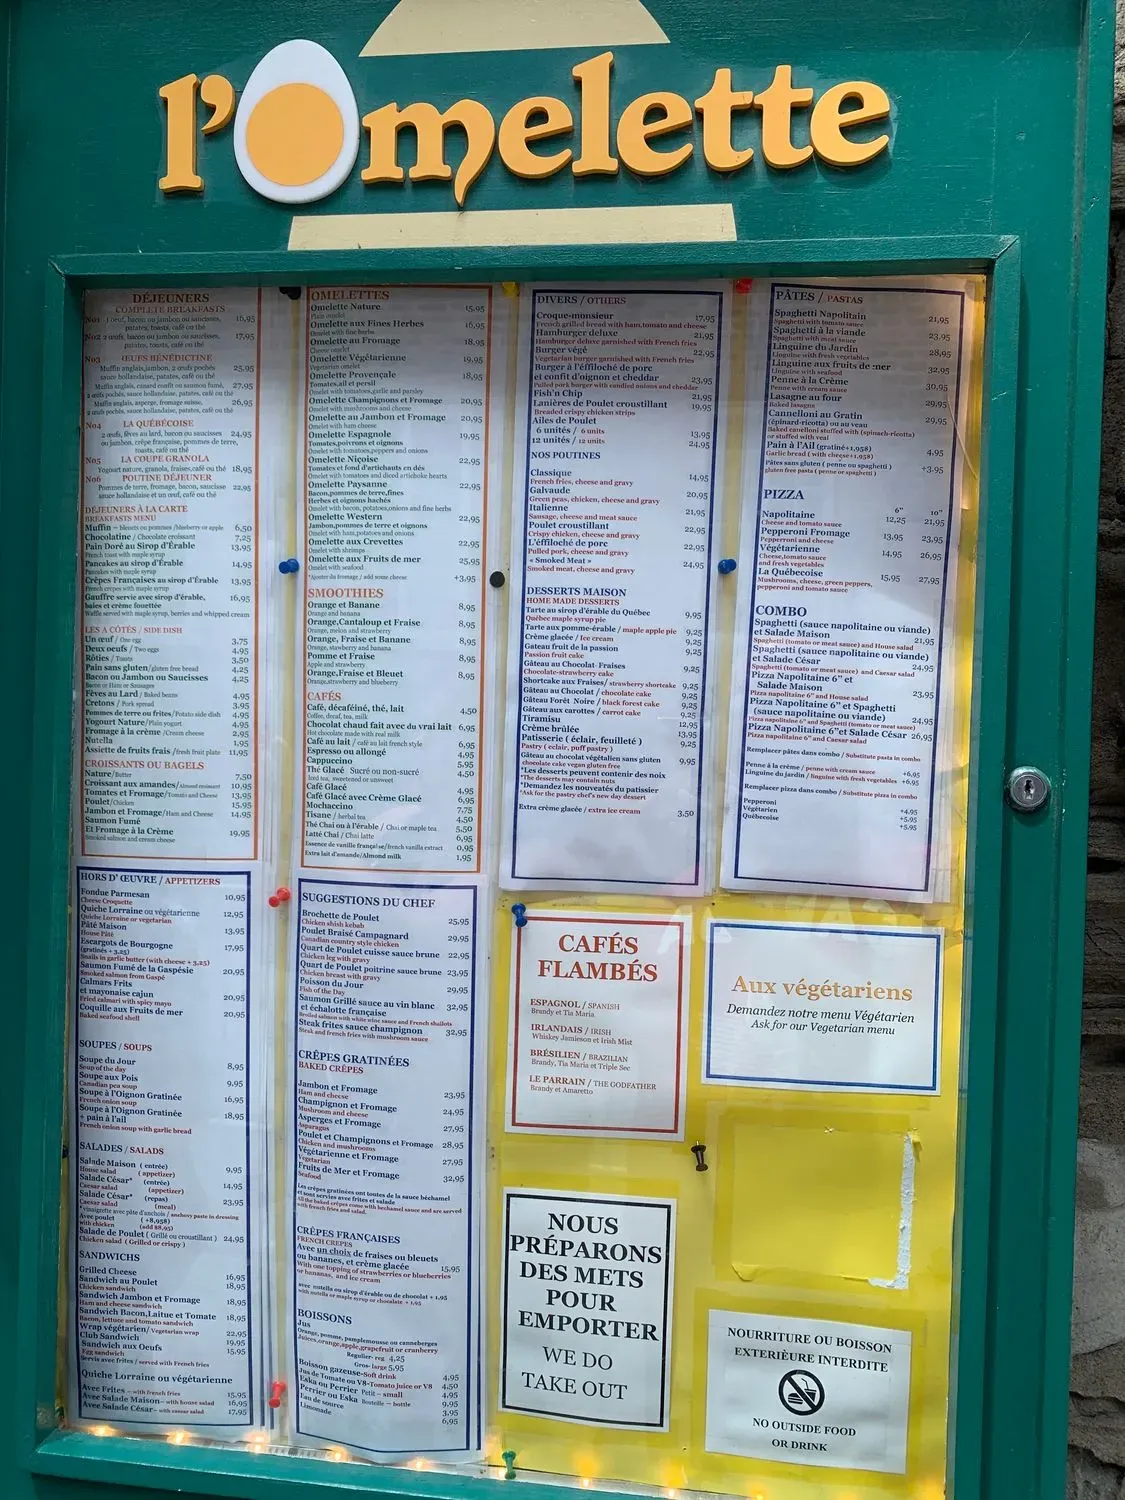 l'Omelette
DÉJEUNERS
COMPLETE BREAKFASTS
No1 1 oeuf, bacon ou jambon ou saucisses, 16,95
patates, toasts, café ou thé
No2 2 œufs, bacon ou jambon ou saucisses, 17,95
patates, toasts, café ou thé
No3 ŒUFS BÉNÉDICTINE
Muffin anglais, jambon, 2 œufs pochés 25,95
sauce hollandaise, patates, café ou thé
Muffin anglais, canard confit ou saumon fumé, 27,95
2 œufs pochés, sauce hollandaise, patates, café ou thé
Muffin anglais, asperge, fromage suisse, 26,95
2 œufs pochés, sauce hollandaise, patates, café ou thé
No4 LA QUÉBÉCOISE
2 œufs, fèves au lard, bacon ou saucisses 24,95
ou jambon, crêpe française, pommes de terre,
toasts, café ou thé
No5 LA COUPE GRANOLA
Yogourt nature, granola, fraises, café ou thé 18,95
No6 POUTINE DÉJEUNER
Pommes de terre, fromage, bacon, saucisse 22,95
sauce hollandaise et un œuf, café ou thé
DÉJEUNERS À LA CARTE
BREAKFASTS MENU
Muffin – bleuets ou pommes /blueberry or apple 6,50
Chocolatine / Chocolate croissant 7,25
Pain Doré au Sirop d'Érable 13,95
French toast with maple syrup
Pancakes au sirop d'Érable 14,95
Pancakes with maple syrup
Crêpes Françaises au sirop d'Érable 13,95
French crepes with maple syrup
Gauffre servie avec sirop d'érable, 16,95
baies et crème fouettée
Waffle served with maple syrup, berries and whipped cream
LES A CÔTÉS / SIDE DISH
Un œuf / One egg 3,75
Deux oeufs / Two eggs 4,95
Rôties / Toasts 3,50
Pain sans gluten/gluten free bread 4,25
Bacon ou Jambon ou Saucisses 4,25
Bacon or Ham or Sausages
Fèves au Lard / Baked beans 4,95
Cretons / Pork spread 3,95
Pommes de terre ou frites/Potato side dish 4,95
Yogourt Nature/Plain yogurt 4,95
Fromage à la crème /Cream cheese 2,95
Nutella 1,95
Assiette de fruits frais /fresh fruit plate 11,95
CROISSANTS OU BAGELS
Nature/Butter 7,50
Croissant aux amandes/Almond croissant 10,95
Tomates et Fromage/Tomato and Cheese 13,95
Poulet/Chicken 15,95
Jambon et Fromage/Ham and Cheese 14,95
Saumon Fumé
Et Fromage à la Crème 19,95
Smoked salmon and cream cheese
OMELETTES
Omelette Nature 15,95
Plain omelet
Omelette aux Fines Herbes 16,95
Omelet with fine herbs
Omelette au Fromage 18,95
Cheese omelet
Omelette Végétarienne 19,95
Vegetarian omelet
Omelette Provençale 18,95
Tomates,ail et persil
Omelet with tomatoes, garlic and parsley
Omelette Champignons et Fromage 20,95
Omelet with mushrooms and cheese
Omelette au Jambon et Fromage 20,95
Omelet with ham cheese
Omelette Espagnole 19,95
Tomates,poivrons et oignons
Omelet with tomatoes,peppers and onions
Omelette Niçoise 22,95
Tomates et fond d'artichauts en dés
Omelet with tomatoes and diced artichoke hearts
Omelette Paysanne 22,95
Bacon,pommes de terre,fines
Herbes et oignons hachés
Omelet with bacon, potatoes,onions and fine herbs
Omelette Western 22,95
Jambon,pommes de terre et oignons
Omelet with ham,potatoes and onions
Omelette aux Crevettes 22,95
Omelet with shrimps
Omelette aux Fruits de mer 25,95
Omelet with seafood
*Ajouter du fromage / add some cheese +3,95
SMOOTHIES
Orange et Banane 8,95
Orange and banana
Orange,Cantaloup et Fraise 8,95
Orange, melon and strawberry
Orange, Fraise et Banane 8,95
Orange, stawberry and banana
Pomme et Fraise 8,95
Apple and strawberry
Orange,Fraise et Bleuet 8,95
Orange,strawberry and blueberry
CAFÉS
Café, décaféiné, thé, lait 4,50
Coffee, decaf, tea, milk
Chocolat chaud fait avec du vrai lait 6,95
Hot chocolate made with real milk
Café au lait / café au lait french style 6,95
Espresso ou allongé 4,95
Cappuccino 5,95
Thé Glacé Sucré ou non-sucré 4,50
Iced tea, sweetened or unsweet
Café Glacé 4,95
Café Glacé avec Crème Glacé 6,95
Mochaccino 7,75
Tisane / herbal tea 4,50
Thé Chai ou à l'érable / Chai or maple tea 5,50
Latté Chai / Chai latte 6,95
Essence de vanille française/french vanilla extract 0,95
Extra lait d'amande/Almond milk 1,95
DIVERS / OTHERS
Croque-monsieur 17,95
French grilled bread with ham,tomato and cheese
Hamburger deluxe 21,95
Hamburger deluxe garnished with French fries
Burger végé 22,95
Vegetarian burger garnished with French fries
Burger à l'éffiloché de porc
et confit d'oignon et cheddar 23,95
Pulled pork burger with candied onions and cheddar
Fish'n Chip 21,95
Lanières de Poulet croustillant 19,95
Breaded crispy chicken strips
Ailes de Poulet
6 unités / 6 units 13,95
12 unités / 12 units 24,95
NOS POUTINES
Classique 14,95
French fries, cheese and gravy
Galvaude 20,95
Green peas, chicken, cheese and gravy
Italienne 21,95
Sausage, cheese and meat sauce
Poulet croustillant 22,95
Crispy chicken, cheese and gravy
L'éffiloché de porc 22,95
Pulled pork, cheese and gravy
« Smoked Meat » 24,95
Smoked meat, cheese and gravy
DESSERTS MAISON
HOME MADE DESSERTS
Tarte au sirop d'érable du Québec 9,95
Québec maple syrup pie
Tarte aux pomme-érable / maple apple pie 9,25
Crème glacée / Ice cream 9,25
Gateau fruit de la passion 9,25
Passion fruit cake
Gâteau au Chocolat-Fraises 9,25
Chocolate-strawberry cake
Shortcake aux Fraises/ strawberry shortcake 9,25
Gâteau au Chocolat / chocolate cake 9,25
Gâteau Forêt Noire / black forest cake 9,25
Gâteau aux carottes / carrot cake 9,25
Tiramisu 12,95
Crème brûlée 13,95
Patisserie ( éclair, feuilleté ) 9,25
Pastry ( éclair, puff pastry )
Gâteau au chocolat végétalien sans gluten 9,95
chocolate cake vegan gluten free
*Les desserts peuvent contenir des noix
*The desserts may contain nuts
*Demandez les nouveatés du patissier
*Ask for the pastry chef's new day dessert
Extra crème glacée / extra ice cream 3,50
PÂTES / PASTAS
Spaghetti Napolitain 21,95
Spaghetti with tomato sauce
Spaghetti à la viande 23,95
Spaghetti with meat sauce
Linguine du Jardin 28,95
Linguine with fresh vegetables
Linguine aux fruits de mer 32,95
Linguine with seafood
Penne à la Crème 30,95
Penne with cream sauce
Lasagne au four 29,95
Baked lasagna
Cannelloni au Gratin
(épinard-ricotta) ou au veau 29,95
Baked canelloni stuffed with (spinach-ricotta)
or stuffed with veal
Pain à l'Ail (gratiné+1,958) 4,95
Garlic bread ( with cheese+1,958)
Pâtes sans gluten ( penne ou spaghetti ) +3,95
gluten free pasta ( penne or spaghetti )
PIZZA
6" 10"
Napolitaine 12,25 21,95
Cheese and tomato sauce
Pepperoni Fromage 13,95 23,95
Pepperroni and cheese
Végétarienne 14,95 26,95
Cheese,tomato sauce
and fresh vegetables
La Québecoise 15,95 27,95
Mushrooms, cheese, green peppers,
pepperoni and tomato sauce
COMBO
Spaghetti (sauce napolitaine ou viande)
et Salade Maison 21,95
Spaghetti (tomato or meat sauce) and House salad
Spaghetti (sauce napolitaine ou viande)
et Salade César 24,95
Spaghetti (tomato or meat sauce) and Caesar salad
Pizza Napolitaine 6" et
Salade Maison 23,95
Pizza napolitaine 6" and House salad
Pizza Napolitaine 6" et Spaghetti
(sauce napolitaine ou viande) 24,95
Pizza napolitaine 6" and Spaghetti (tomato or meat sauce)
Pizza Napolitaine 6"et Salade César 26,95
Pizza napolitaine 6" and Caesar salad
Remplacer pâtes dans combo / Substitute pasta in combo
Penne à la crème / penne with cream sauce +6,95
Linguine du jardin / linguine with fresh vegetables +6,95
Remplacer pizza dans combo / Substitute pizza in combo
Pepperoni +4,95
Végétarien +5,95
Québecoise +5,95
HORS D' ŒUVRE / APPETIZERS
Fondue Parmesan 10,95
Cheese Croquette
Quiche Lorraine ou végétarienne 12,95
Quiche Lorraine or vegetarian
Pâté Maison 13,95
House Pâté
Escargots de Bourgogne 17,95
(gratinés + 3,25)
Snails in garlic butter (with cheese + 3,25)
Saumon Fumé de la Gaspésie 20,95
Smoked salmon from Gaspé
Calmars Frits
et mayonaise cajun 20,95
Fried calmari with spicy mayo
Coquille aux Fruits de mer 20,95
Baked seafood shell
SOUPES / SOUPS
Soupe du Jour 8,95
Soup of the day
Soupe aux Pois 9,95
Canadian pea soup
Soupe à l'Oignon Gratinée 16,95
French onion soup
Soupe à l'Oignon Gratinée 18,95
+ pain à l'ail
French onion soup with garlic bread
SALADES / SALADS
Salade Maison ( entrée) 9,95
House salad ( appetizer)
Salade César* (entrée) 14,95
Caesar salad (appetizer)
Salade César* (repas) 23,95
Caesar salad (meal)
*vinaigrette avec pâte d'anchois / anchovy paste in dressing
Avec poulet ( +8,958)
with chicken (add $8,95)
Salade de Poulet ( Grillé ou croustillant ) 24,95
Chicken salad ( Grilled or crispy )
SANDWICHS
Grilled Cheese 16,95
Sandwich au Poulet 18,95
Chicken sandwich
Sandwich Jambon et Fromage 18,95
Ham and cheese sandwich
Sandwich Bacon,Laitue et Tomate 18,95
Bacon, lettuce and tomato sandwich
Wrap végétarien/ Vegetarian wrap 22,95
Club Sandwich 19,95
Sandwich aux Oeufs 15,95
Egg sandwich
Servis avec frites / served with French fries
Quiche Lorraine ou végétarienne
Avec Frites – with french fries 15,95
Avec Salade Maison– with house salad 16,95
Avec Salade César– with caesar salad 17,95
SUGGESTIONS DU CHEF
Brochette de Poulet 25,95
Chicken shish kebab
Poulet Braisé Campagnard 29,95
Canadian country style chicken
Quart de Poulet cuisse sauce brune 22,95
Chicken leg with gravy
Quart de Poulet poitrine sauce brune 23,95
Chicken breast with gravy
Poisson du Jour 29,95
Fish of the Day
Saumon Grillé sauce au vin blanc 32,95
et échalotte française
Broiled salmon with white wine sauce and French shallots
Steak frites sauce champignon 32,95
Steak and french fries with mushroom sauce
CRÊPES GRATINÉES
BAKED CRÊPES
Jambon et Fromage 23,95
Ham and cheese
Champignon et Fromage 24,95
Mushroom and cheese
Asperges et Fromage 27,95
Asparagus
Poulet et Champignons et Fromage 28,95
Chicken and mushrooms
Végétarienne et Fromage 27,95
Vegetarian
Fruits de Mer et Fromage 32,95
Seafood
Les crêpes gratinées ont toutes de la sauce béchamel
et sont servies avec frites et salade
All the baked crêpes come with bechamel sauce and are served
with french fries and salad.
CRÊPES FRANÇAISES
FRENCH CREPES
Avec un choix de fraises ou bleuets
ou bananes, et crème glacée 15,95
With one topping of strawberries or blueberries
or bananas, and ice cream
avec nutella ou sirop d'érable ou de chocolat + 1,95
with nutella or maple syrup or chocolate + 1,95
BOISSONS
Jus
Orange, pomme, pamplemousse ou canneberges
Juices,orange,apple,grapefruit or cranberry
Regulier-reg 4,25
Gros- large 5,95
Boisson gazeuse-Soft drink 4,95
Jus de Tomate ou V8-Tomato juice or V8 4,50
Eska ou Perrier Petit – small 4,95
Perrier ou Eska Bouteille – bottle 9,95
Eau de source 3,95
Limonade 6,95
CAFÉS
FLAMBÉS
ESPAGNOL / SPANISH
Brandy et Tia Maria
IRLANDAIS / IRISH
Whiskey Jamieson et Irish Mist
BRÉSILIEN / BRAZILIAN
Brandy, Tia Maria et Triple Sec
LE PARRAIN / THE GODFATHER
Brandy et Amaretto
Aux végétariens
Demandez notre menu Végétarien
Ask for our Vegetarian menu
NOUS
PRÉPARONS
DES METS
POUR
EMPORTER
WE DO
TAKE OUT
NOURRITURE OU BOISSON
EXTERIÈURE INTERDITE
NO OUTSIDE FOOD
OR DRINK